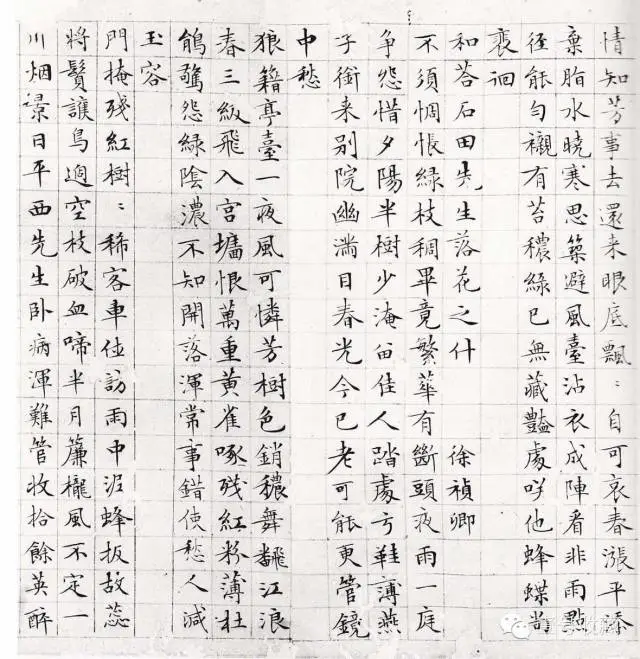 情知芳事去還来眼底飄〻自可哀春漲平添
棄脂水曉寒思築避風臺沾衣成陣看非雨點
徑能勻襯有苔穠綠已無藏豔處咲他蜂蝶尚
裵迴
和荅石田先生落花之什 徐禎卿
不須惆悵綠枝稠畢竟繁華有斷頭夜雨一庭
争怨惜夕陽半樹少淹留佳人踏處弓鞋薄燕
子銜来别院幽滿目春光今已老可能更管鏡
中愁
狼籍亭臺一夜風可憐芳樹色銷穠舞飜江浪
春三級飛入宮墻恨萬重黃雀啄殘紅粉薄杜
鵑驚怨綠陰濃不知開落渾常事錯使愁人減
玉容
門掩殘紅樹〻稀客車住訪雨中泥蜂扳故蕊
將鬚護鳥過空枝破血啼半月簾櫳風不定一
川烟景日平西先生卧病渾難管收拾餘英醉